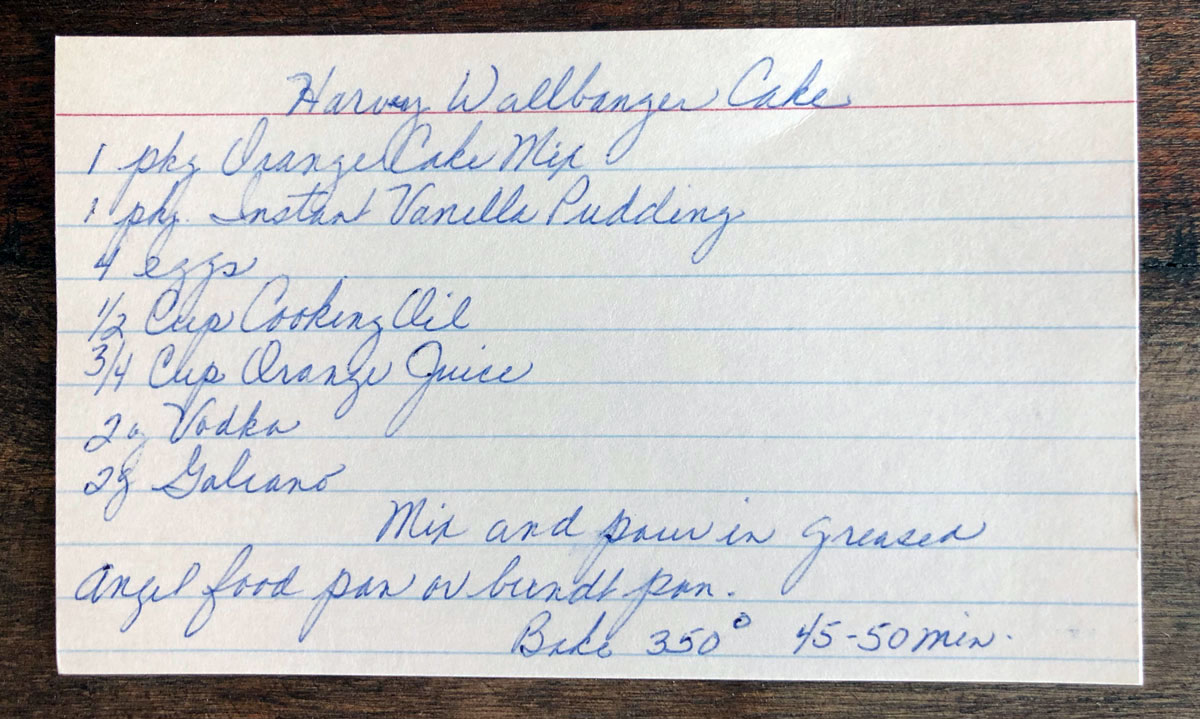 Harvey Wallbanger Cake
1 pkg Orange Cake Mix
1 pkg. Instant Vanilla Pudding
4 eggs
1/2 Cup Cooking Oil
3/4 Cup Orange Juice
2 oz Vodka
2 oz Galiano
Mix and pour in greased
angel food pan or bundt pan.
Bake 350° 45-50 min.